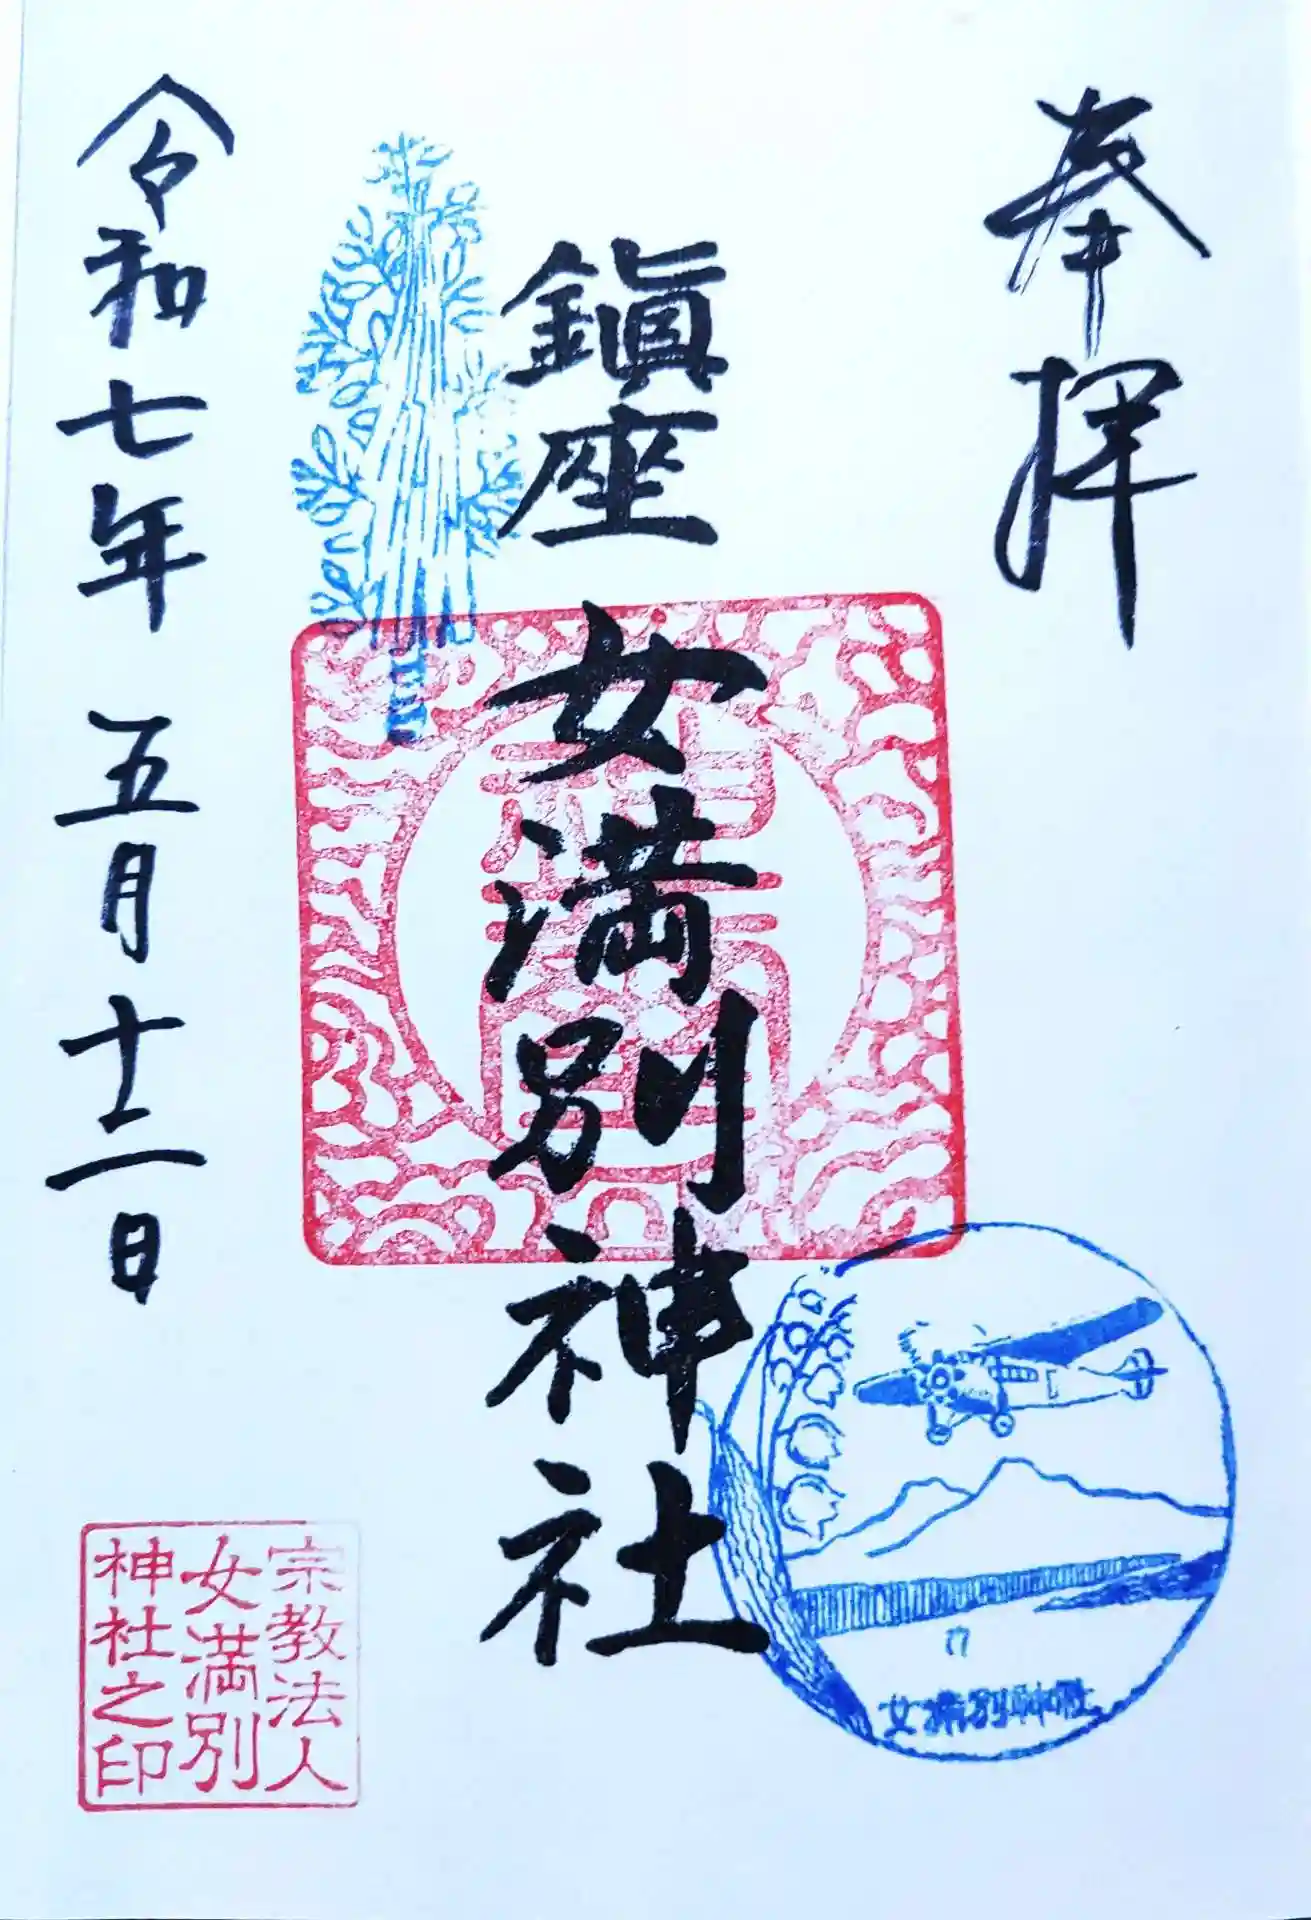 奉拝
鎭座
女満別神社
令和七年 五月十二日
宗教法人
女満別
神社之印
女満別神社